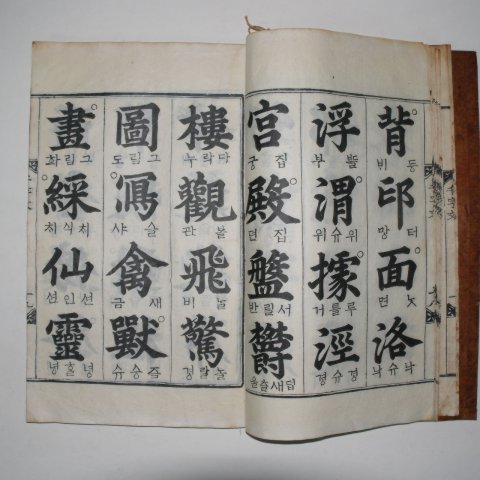 背 등 비 邙 터 망 面 낫 면 洛 낙슈 낙
浮 뜰 부 渭 위슈 위 據 거 涇 경슈 경
宮 집 궁 殿 집 뎐 盤 서릴 반 鬱 울
樓 다락 누 觀 볼 관 飛 날 비 驚 놀랄 경
圖 그림 도 冩 쓸 샤 禽 새 금 獸 즘승 슈
畫 그림 화 綵 치식 치 仙 션인 션 靈 녕